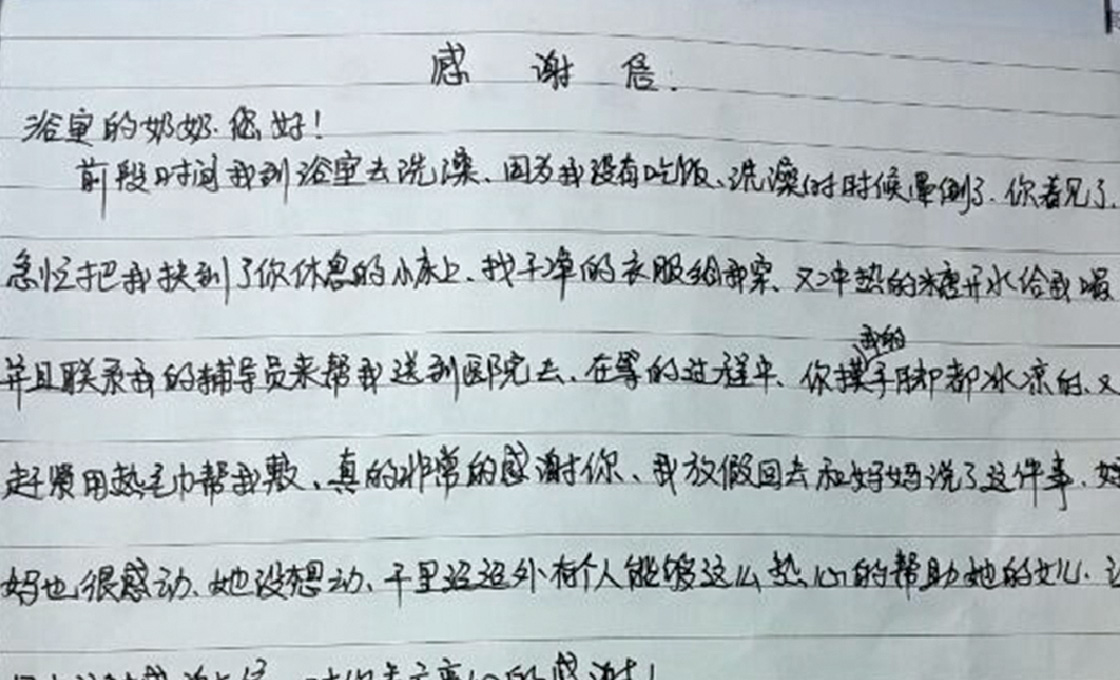 感谢信.
浴室的奶奶.您好!
前段时间我到浴室去洗澡、因为我没有吃饭、洗澡的时候晕倒了.你看见了.
急忙把我扶到了你休息的小床上、找干净的衣服给我穿、又冲热的糖开水给我喝
并且联系我的辅导员来帮我送到医院去、在等的过程中、你摸我的手脚都冰凉的、又
赶紧用热毛巾帮我敷、真的非常的感谢你、我放假回去和妈妈说了这件事.妈
妈也很感动、她没想动、千里迢迢外有个人能够这么热心的帮助她的女儿.
的感谢!